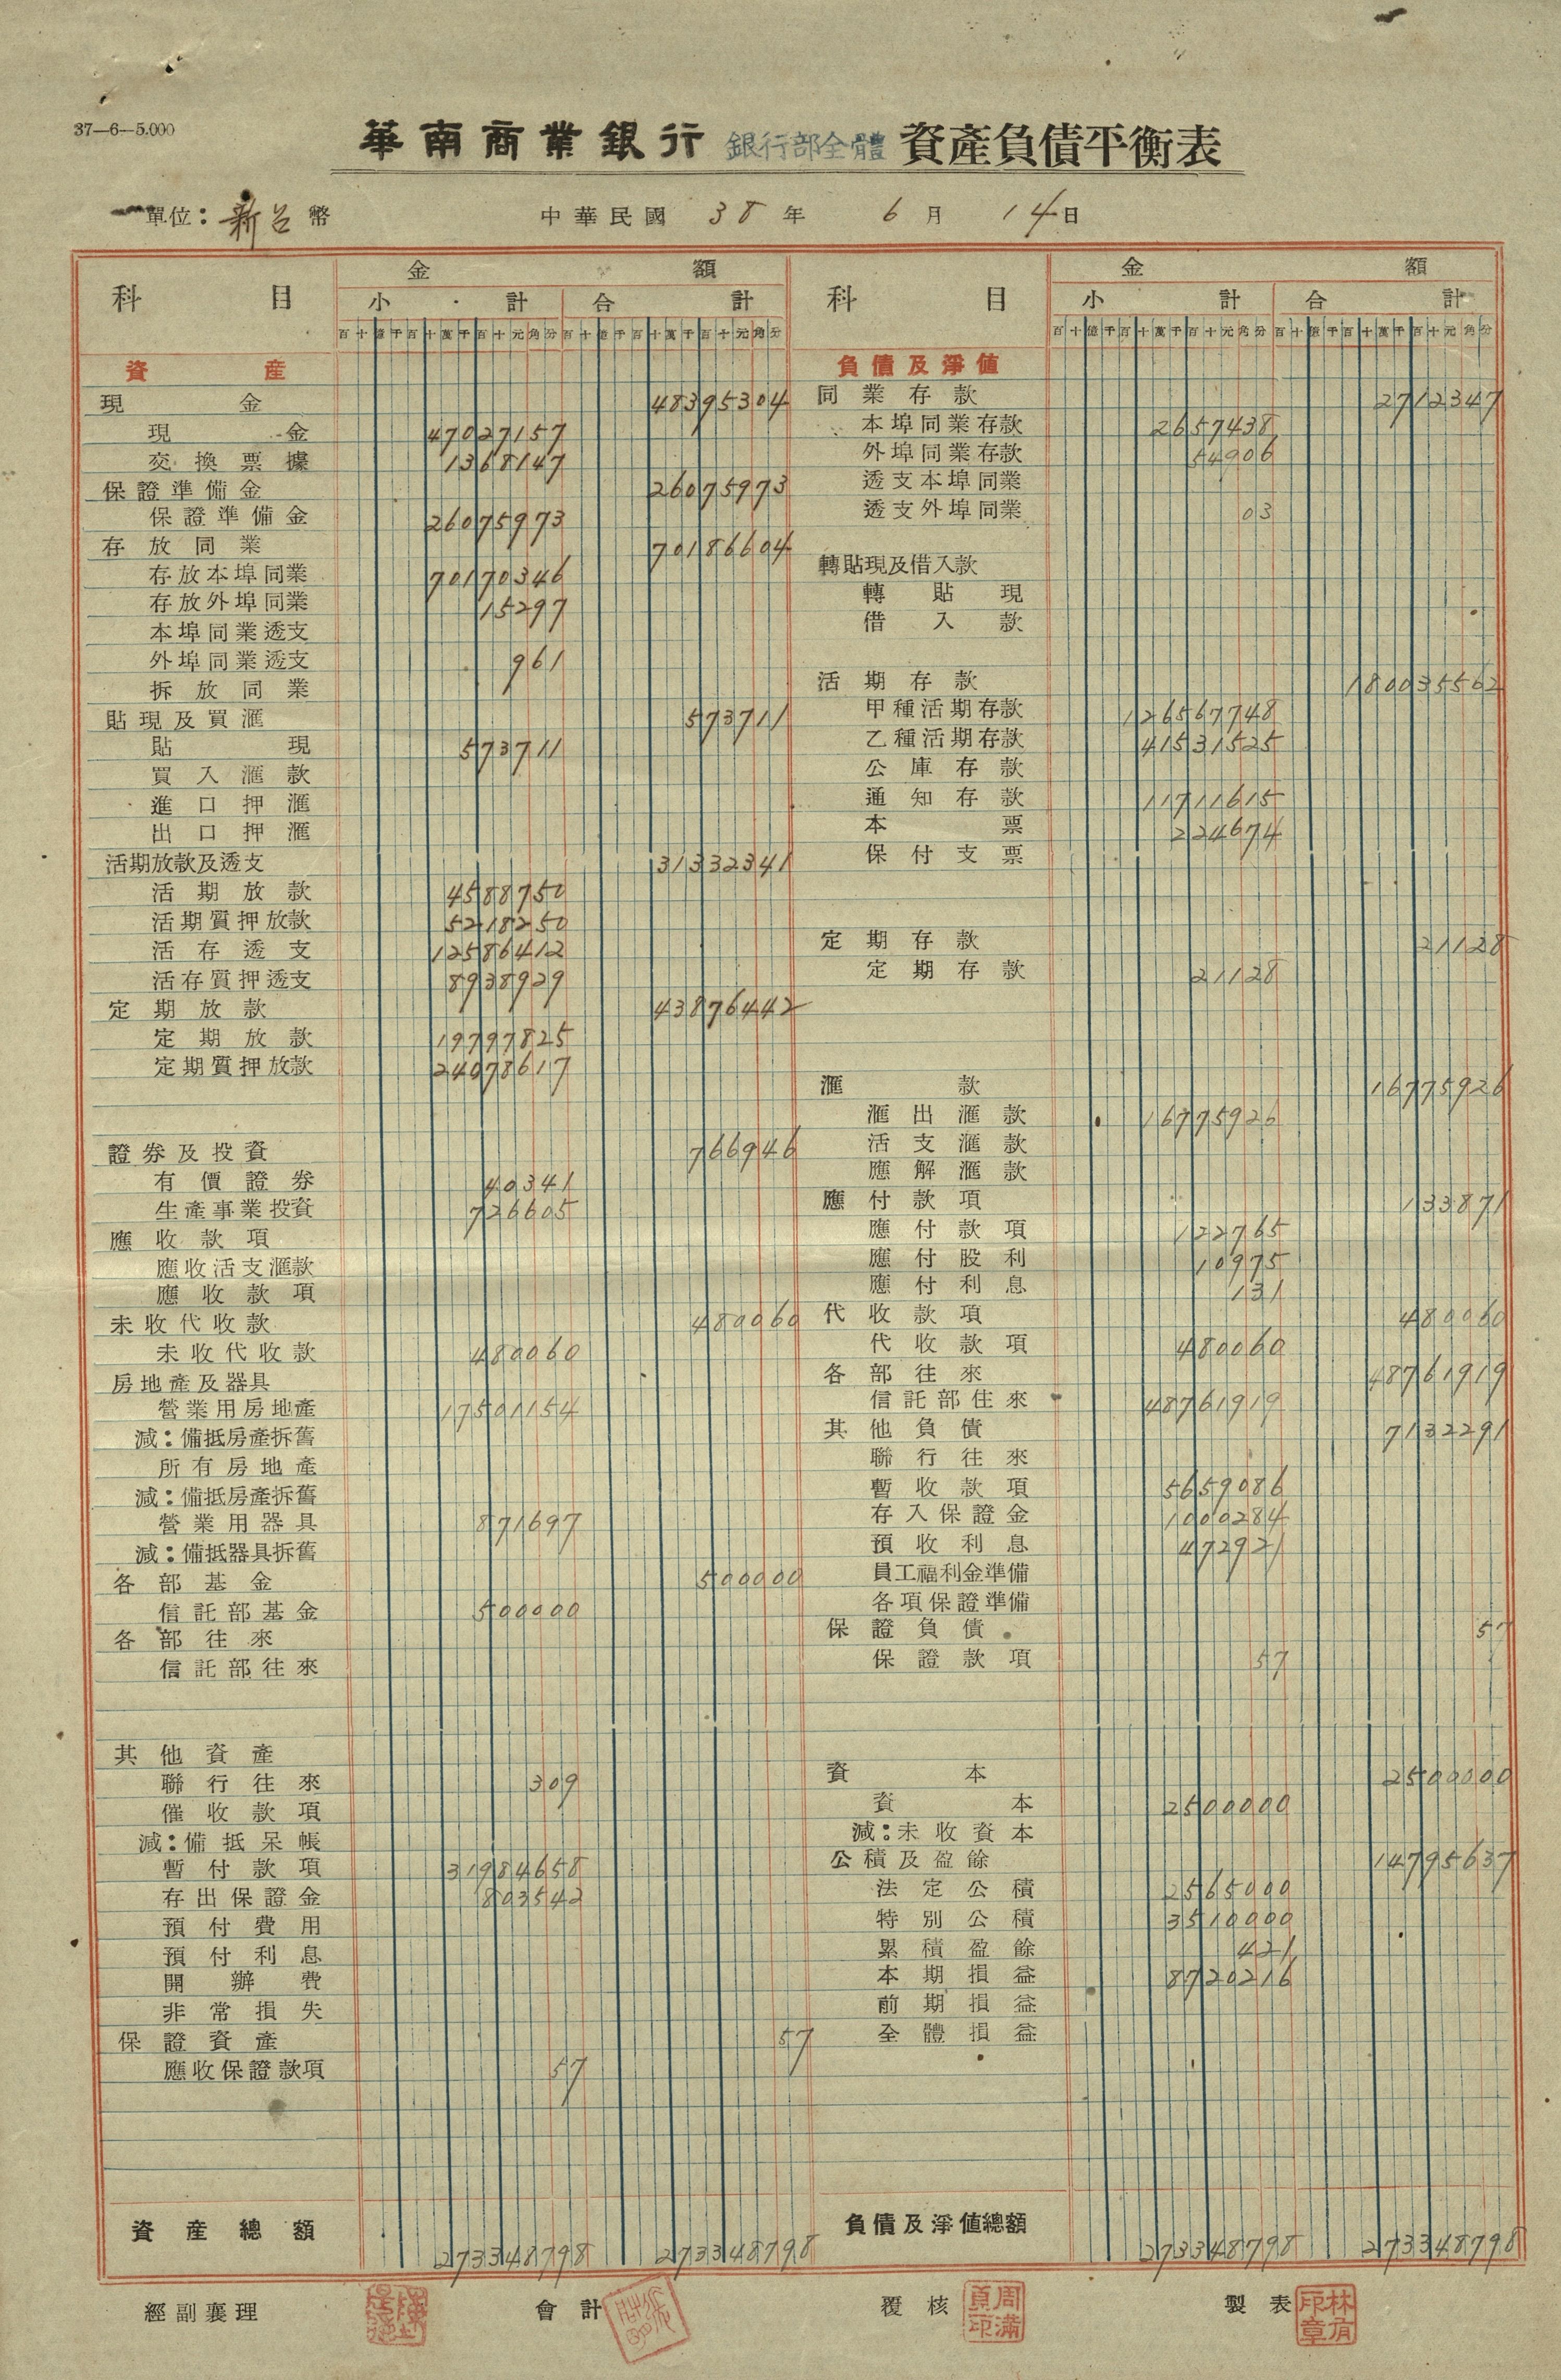 37—6—5.000
華南商業銀行 銀行部全體 資產負債平衡表
單位：新台幣 中華民國 38年 6月 14日
科目 金額 科目 金額
小計 合計 小計 合計
百十億千百十萬千百十元角分 百十億千百十萬千百十元角分 百十億千百十萬千百十元角分 百十億千百十萬千百十元角分
資產
現金 48395304
現金 47027157
交換票據 1368147
保證準備金 26075973
保證準備金 26075973
存放同業 70186604
存放本埠同業 70170346
存放外埠同業 15297
本埠同業透支
外埠同業透支 961
拆放同業
貼現及買滙 573711
貼現 573711
買入滙款
進口押滙
出口押滙
活期放款及透支 31332341
活期放款 4588750
活期質押放款 5218250
活存透支 12586412
活存質押透支 8938929
定期放款 43876442
定期放款 19797825
定期質押放款 24078617
證券及投資 766946
有價證券 40341
生產事業投資 726605
應收款項
應收活支滙款
應收款項
未收代收款 480060
未收代收款 480060
房地產及器具
營業用房地產 17501154
減：備抵房產拆舊
所有房地產
減：備抵房產拆舊
營業用器具 871697
減：備抵器具拆舊
各部基金 500000
信託部基金 500000
各部往來
信託部往來
其他資產
聯行往來 309
催收款項
減：備抵呆帳
暫付款項 31984658
存出保證金 803542
預付費用
預付利息
開辦費
非常損失
保證資產 57
應收保證款項 57
資產總額 273348798 273348798
負債及淨值
同業存款 2712347
本埠同業存款 2657438
外埠同業存款 54906
透支本埠同業
透支外埠同業 03
轉貼現及借入款
轉貼現
借入款
活期存款 180035562
甲種活期存款 126567748
乙種活期存款 41531525
公庫存款
通知存款 11711615
本票 224674
保付支票
定期存款 21128
定期存款 21128
滙款 16775926
滙出滙款 16775926
活支滙款
應解滙款
應付款項 133871
應付款項 122765
應付股利 10975
應付利息 131
代收款項 480060
代收款項 480060
各部往來 48761919
信託部往來 48761919
其他負債 7132291
聯行往來
暫收款項 5659086
存入保證金 1000284
預收利息 472921
員工福利金準備
各項保證準備
保證負債 57
保證款項 57
資本 2500000
資本 2500000
減：未收資本
公積及盈餘 14795637
法定公積 2565000
特別公積 3510000
累積盈餘 421
本期損益 8720216
前期損益
全體損益
負債及淨值總額 273348798 273348798
經副襄理 會計 覆核 周滿貞印 製表 林有印章